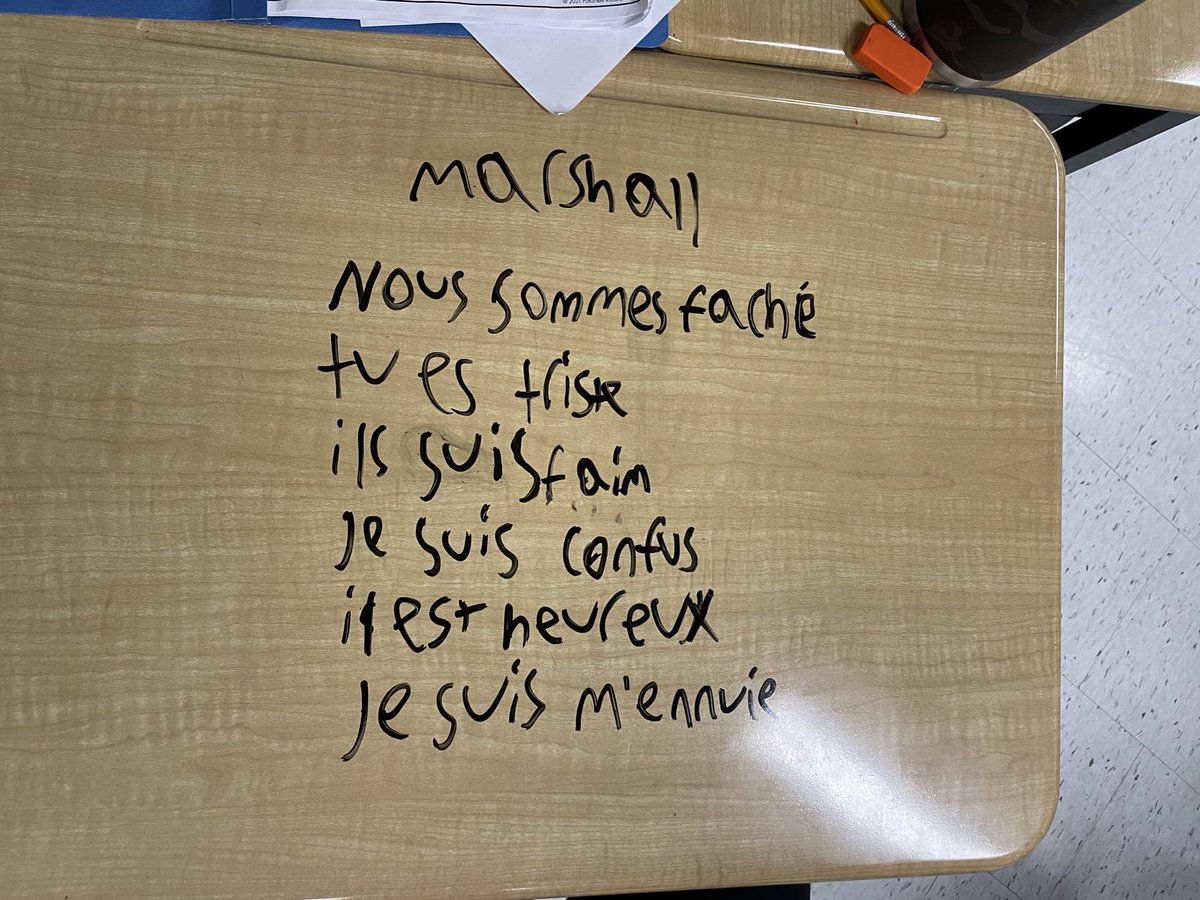 Marshall
Nous sommes faché
tu es triste
ils suis faim
Je suis confus
il est heureux
Je suis m'ennuie